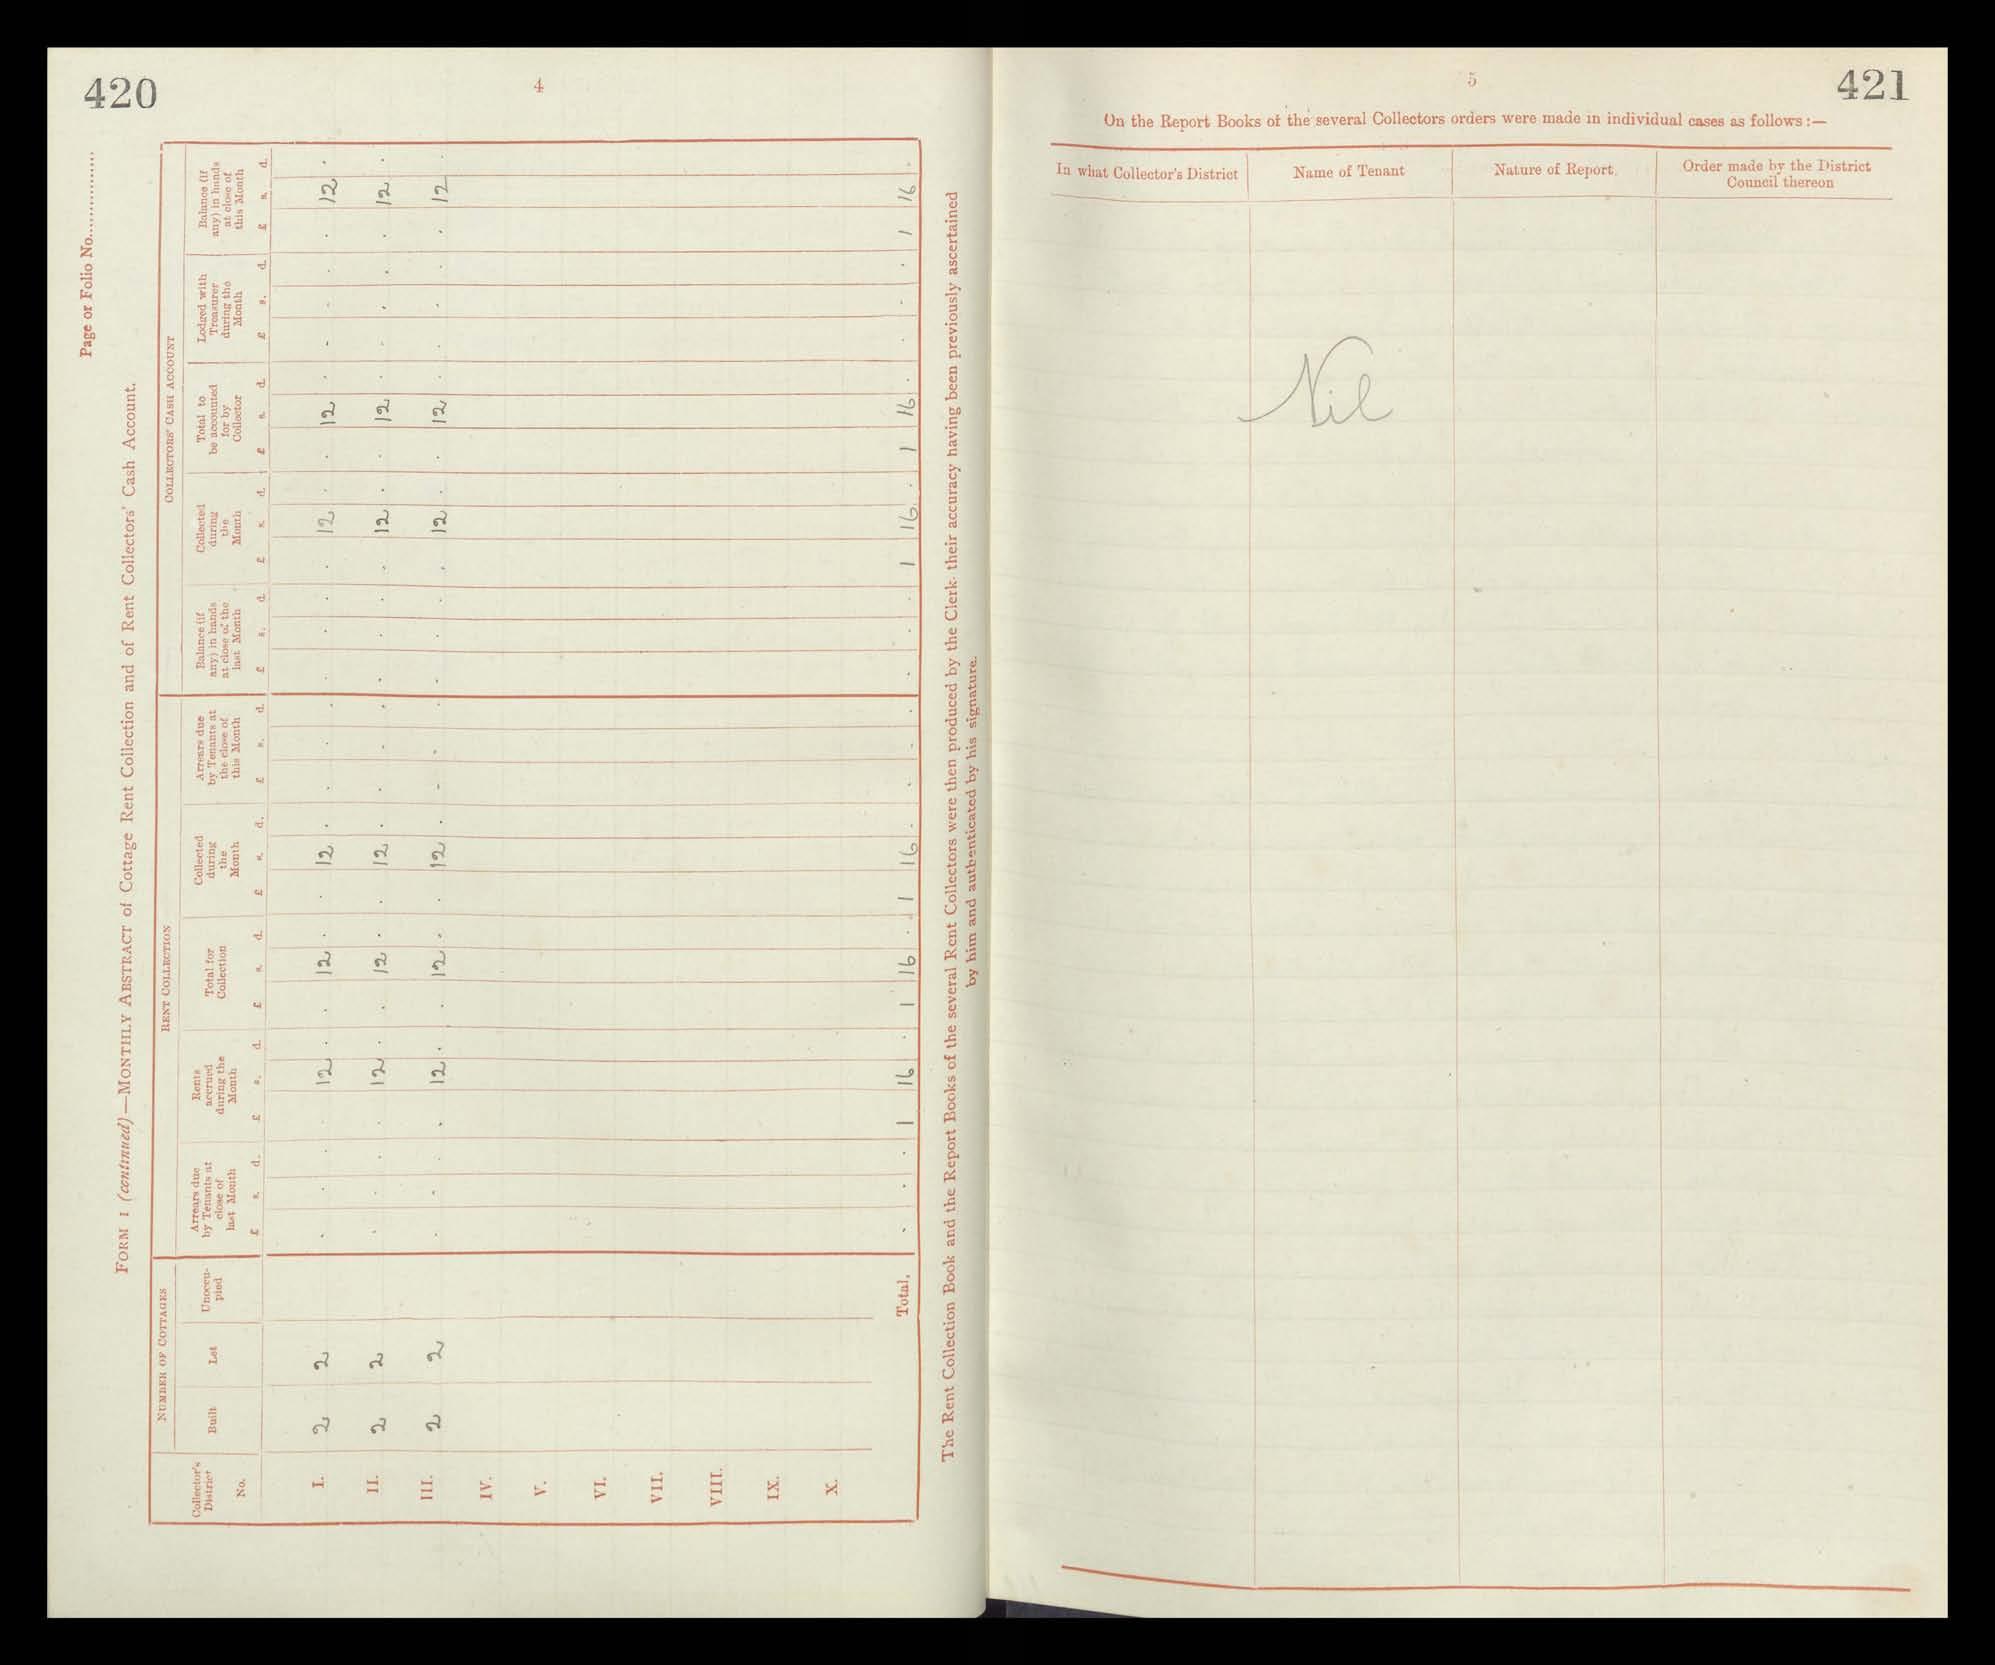 420
4
Page or Folio No..................
FORM 1 (continued)—MONTHLY ABSTRACT of Cottage Rent Collection and of Rent Collectors' Cash Account.
NUMBER OF COTTAGES RENT COLLECTION COLLECTORS' CASH ACCOUNT
Collector's District No.
Built
Let
Unoccu-pied
Arrears due by Tenants at close of last Month
Rents accrued during the Month
Total for Collection
Collected during the Month
Arrears due by Tenants at the close of this Month
Balance (if any) in hands at close of the last Month
Collected during the Month
Total to be accounted for by Collector
Lodged with Treasurer during the Month
Balance (if any) in hands at close of this Month
£ s. d. £ s. d. £ s. d. £ s. d. £ s. d. £ s. d. £ s. d. £ s. d. £ s. d. £ s. d.
I. 2 2 . . . . 12 . . 12 . . 12 . . . . . . . . 12 . . 12 . . . . . 12 .
II. 2 2 . . . . 12 . . 12 . . 12 . . . . . . . . 12 . . 12 . . . . . 12 .
III. 2 2 . . . . 12 . . 12 . . 12 . . . . . . . . 12 . . 12 . . . . . 12 .
IV.
V.
VI.
VII.
VIII.
IX.
X.
Total, . . . 1 16 . 1 16 . 1 16 . . . . . . . 1 16 . 1 16 . . . . 1 16 .
The Rent Collection Book and the Report Books of the several Rent Collectors were then produced by the Clerk· their accuracy having been previously ascertained
by him and authenticated by his signature.
5
421
On the Report Books of the several Collectors orders were made in individual cases as follows:—
In what Collector's District Name of Tenant Nature of Report. Order made by the District
Council thereon
Nil